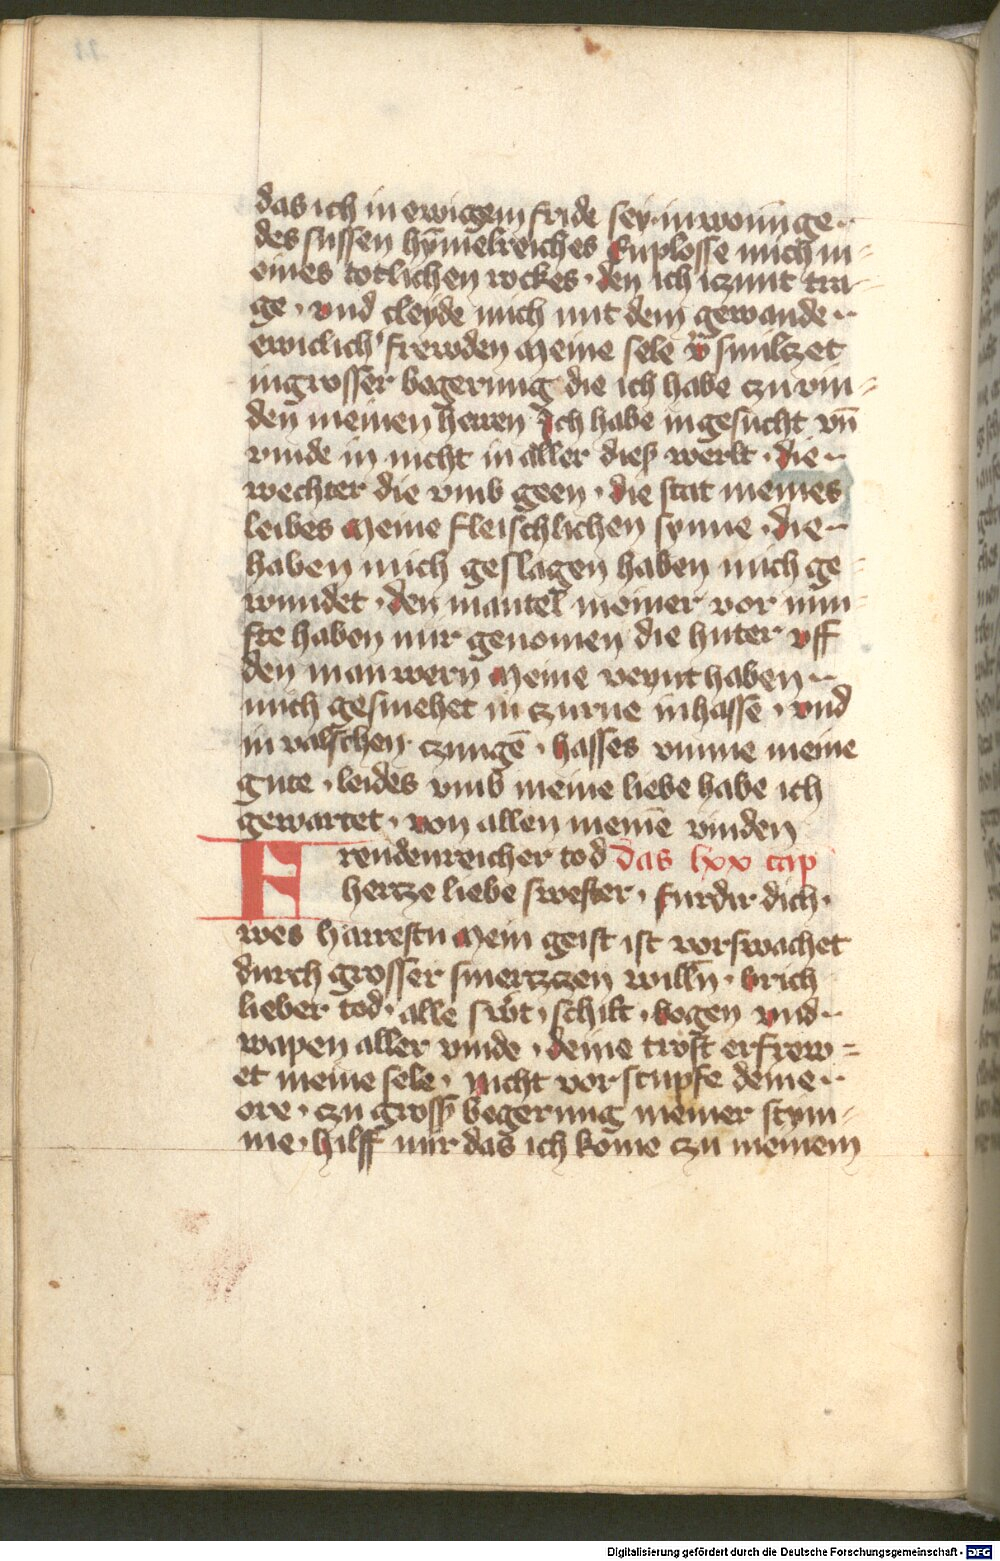 das ich in ewigem fride sey in wonunge
des sussen hymelreiches Enplosse mich in
eines totlichen rockes · den ich iczunt tra
ge · vnd cleyde mich mit dem gewande
ewiclich' frewden Meine sele v'smilczet
in grosser begerung die ich habe czu vin
den meinen herren Ich habe in gesucht vn̄
vinde in nicht in aller dieß werlt · die
wechter die vmb geen · die stat meines
leibes Meine fleischlichen synne · die
haben mich geslagen haben mich ge
wundet · den mantel meiner vor nun
fte haben mir genomen die huter vff
den mauwern Meine veynt haben
mich gesmehet in czurne in hassē · vnd
in valschen czungē · hasses vmme meine
gute · leides vmb meine liebe habe ich
gewartet · von allen meinē vinden
Freudenreicher tod das lxx cap
hertze liebe swester · furdir dich ·
wes harrestu Mein geist ist vorswachet
durch grosser smertzczen willn · brich
lieber tod · alle sw't · schilt · bogen vnd
wapen aller vinde · deine trost erfrew=
et meine sele · nicht vor stupfe deine
ore · czu groß begerung meiner stym
me · hilff mir das ich kome czu meinem
Digitalisierung gefördert durch die Deutsche Forschungsgemeinschaft - DFG